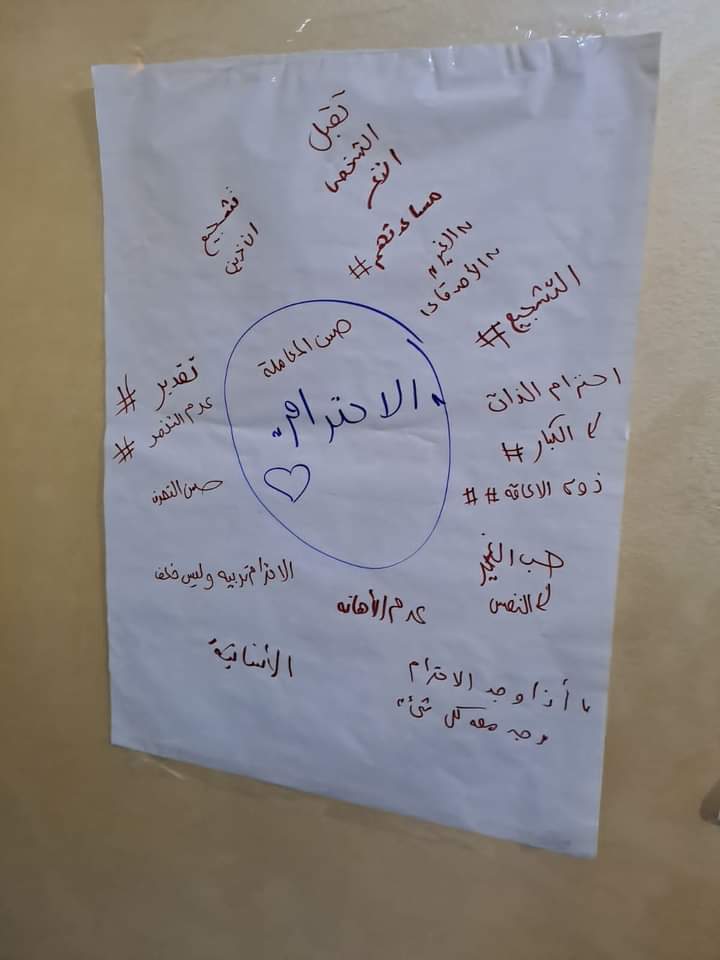 تقبل
الشخص
الآخر
تشجيع
الآخرين
مساعدتهم #
~ الغير ~
~ الأصدقاء
التشجيع #
حسن المعاملة
"الاحترام"
احترام الذات
الكبار #
ذوي الاعاقه # #
تقدير #
عدم التنمر #
حسن التصرف
حب الغير
النفس
الاحترام تربيه وليس خلف
عدم الأهانه
الأنسانية
" أذا وجد الاحترام
وجد معه كل شئ "